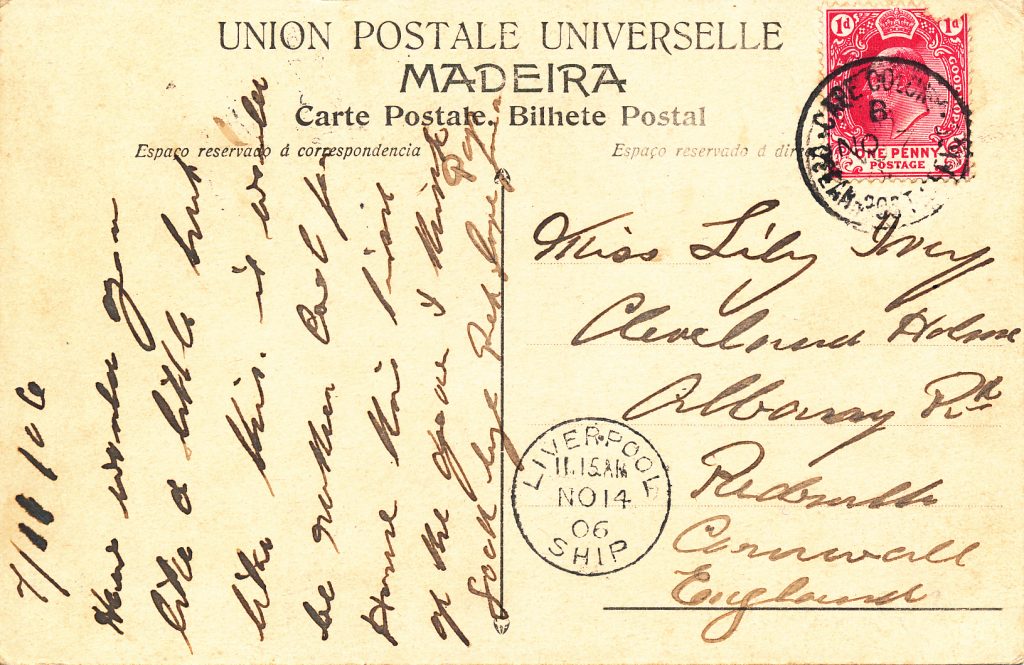 UNION POSTALE UNIVERSELLE
MADEIRA
Carte Postale. Bilhete Postal
Espaço reservado á correspondencia
Espaço reservado á
1d 1d
ONE PENNY
POSTAGE
CAPE COLONY
B
NO
POST
7/11/06
you
like a little hut
like this. it
be rather cool for
this time
of the year I think
Good bye love Pop
Miss Lily Ivey
Cleveland Holme
Albany Rd
Redruth
Cornwall
England
LIVERPOOL
11.15AM
NO14
06
SHIP